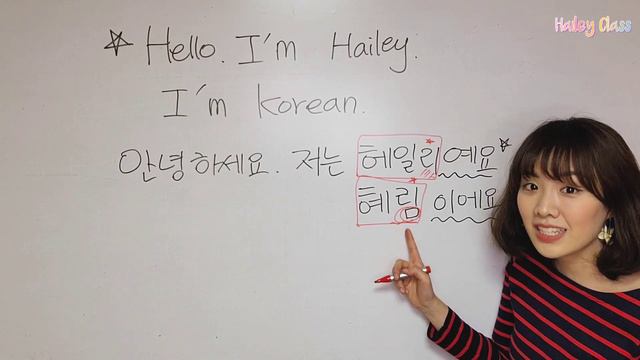 Hailey Class
☆ Hello. I'm Hailey.
I'm korean.
안녕하세요. 저는 헤일리예요☆
혜림 이에요